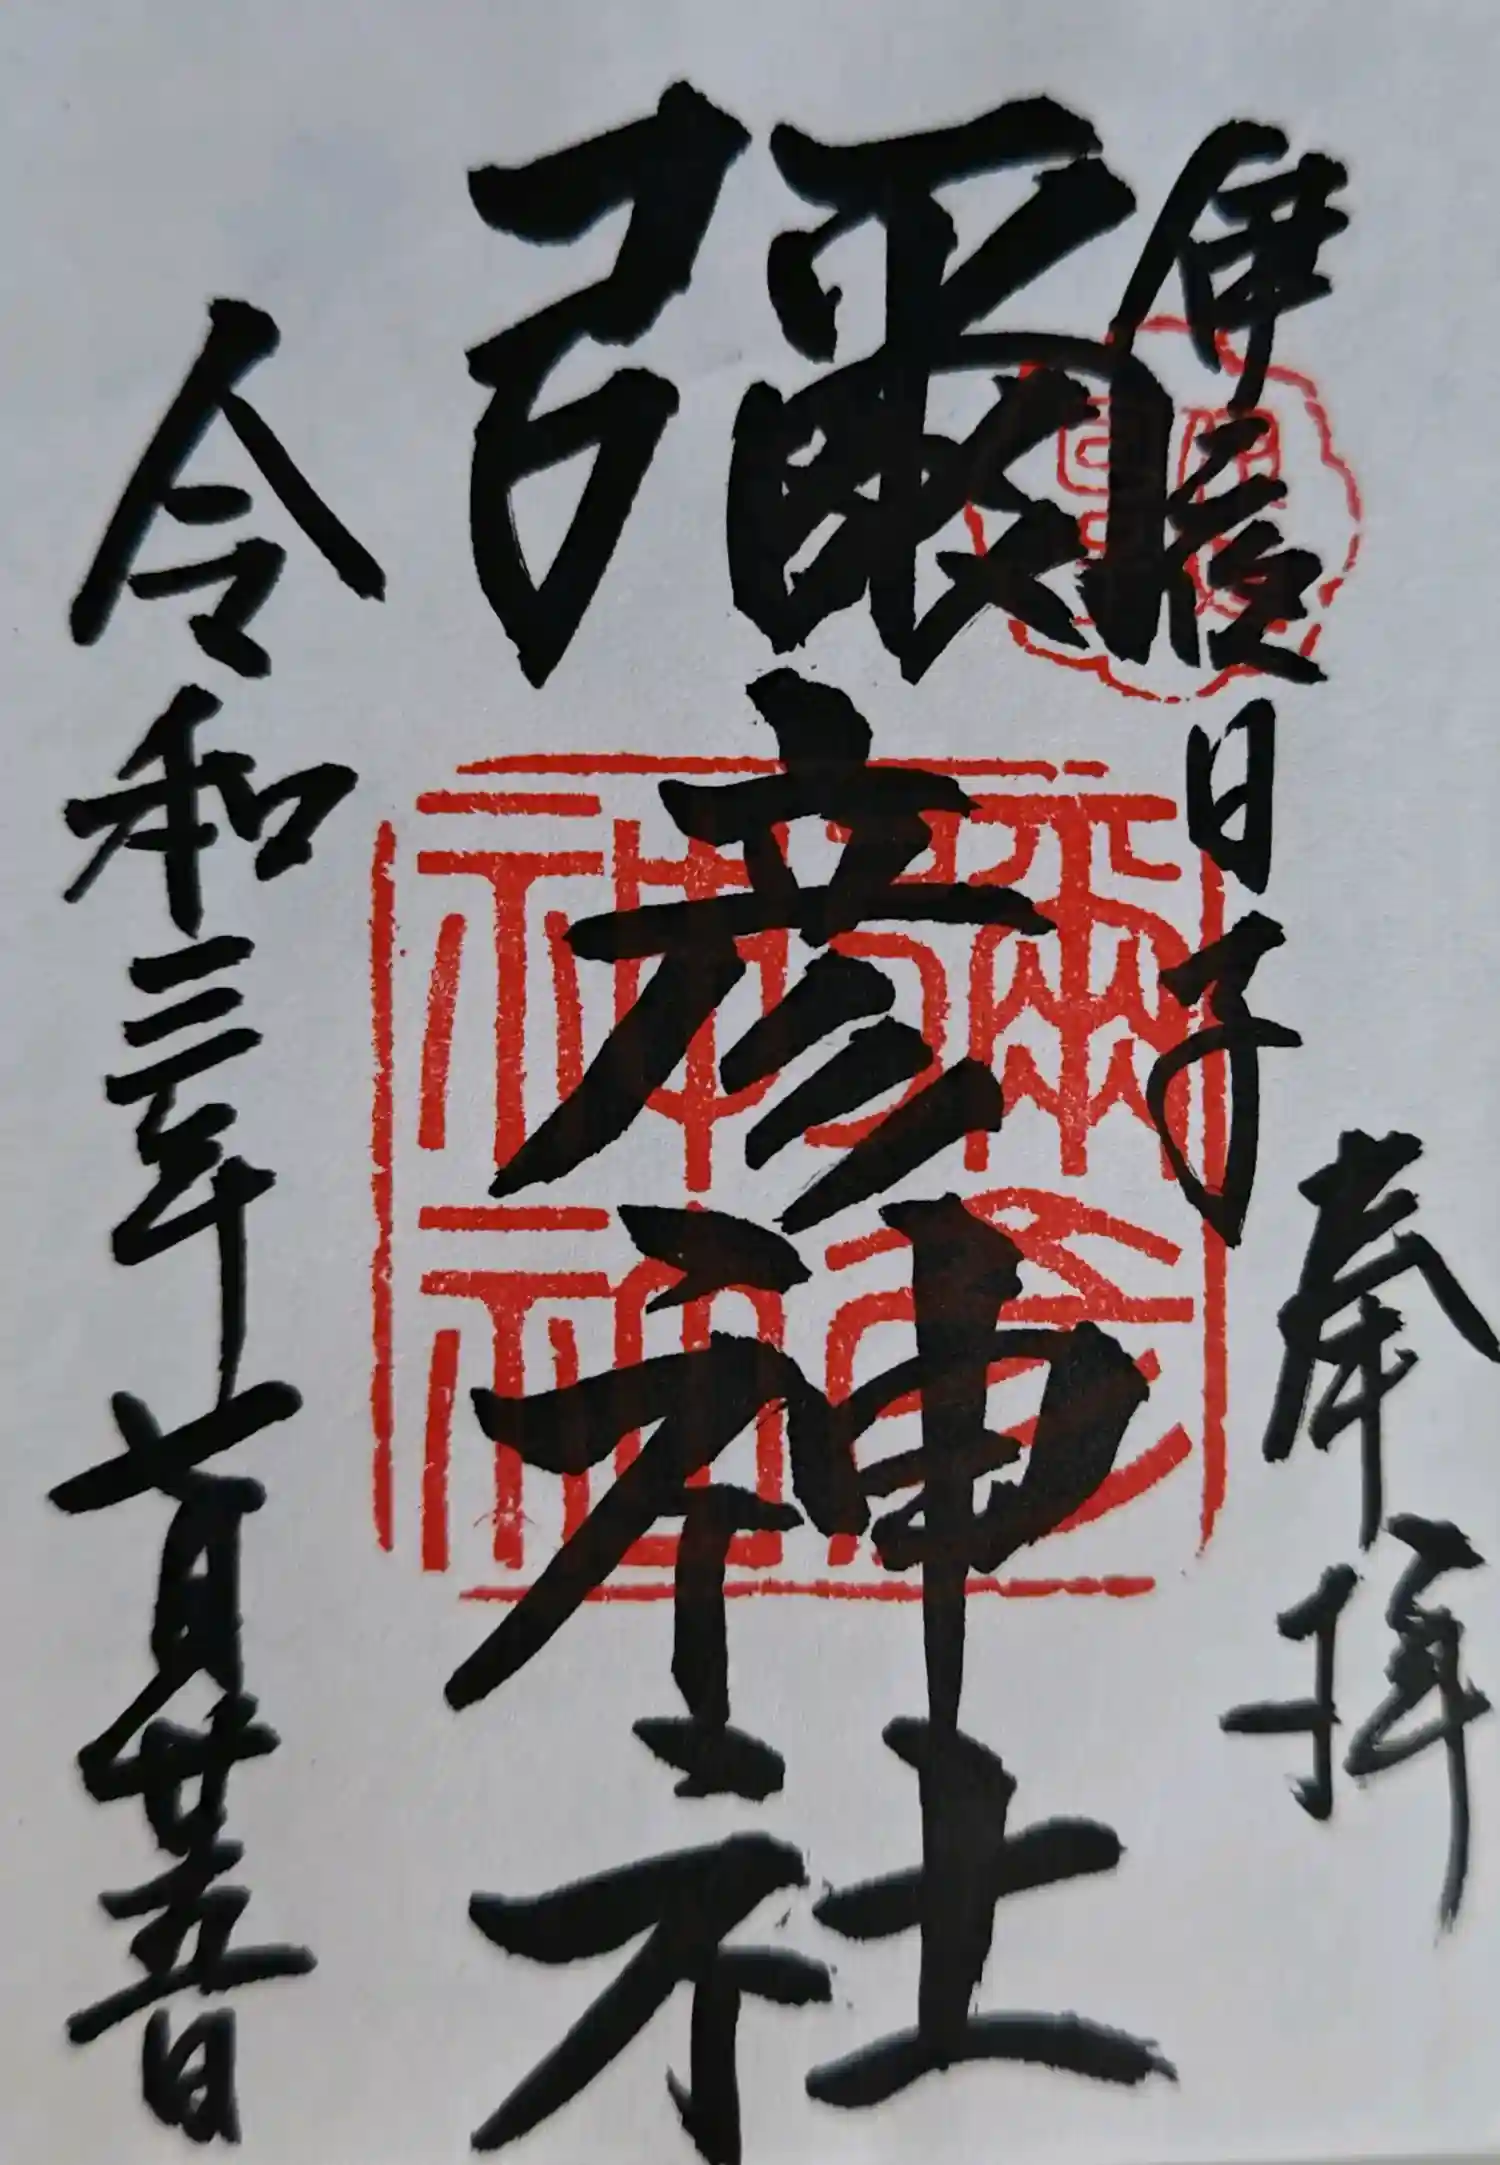 奉拝
伊夜日子
彌彦神社
彌彦
神社
令和三年七月廿五日